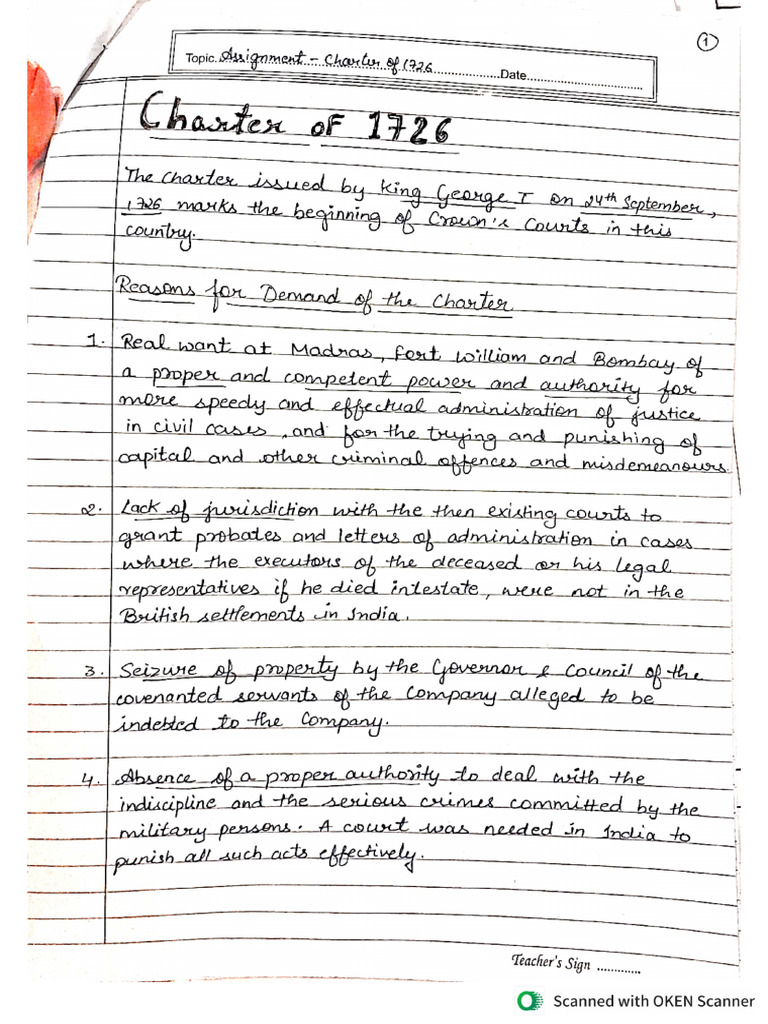 1
Topic. Assignment - Charter of 1726 Date
Charter of 1726
The Charter issued by King George I on 24th September,
1726 marks the beginning of Crown's Courts in this
country.
Reasons for Demand of the Charter
1. Real want at Madras, Fort William and Bombay of
a proper and competent power and authority for
more speedy and effectual administration of justice
in civil cases, and for the trying and punishing of
capital and other criminal offences and misdemeanours.
2. Lack of jurisdiction with the then existing courts to
grant probates and letters of administration in cases
where the executors of the deceased or his legal
representatives if he died intestate, were not in the
British settlements in India.
3. Seizure of property by the Governor & Council of the
covenanted servants of the Company alleged to be
indebted to the Company.
4. Absence of a proper authority to deal with the
indiscipline and the serious crimes committed by the
military persons. A court was needed in India to
punish all such acts effectively.
Teacher's Sign ............
Scanned with OKEN Scanner